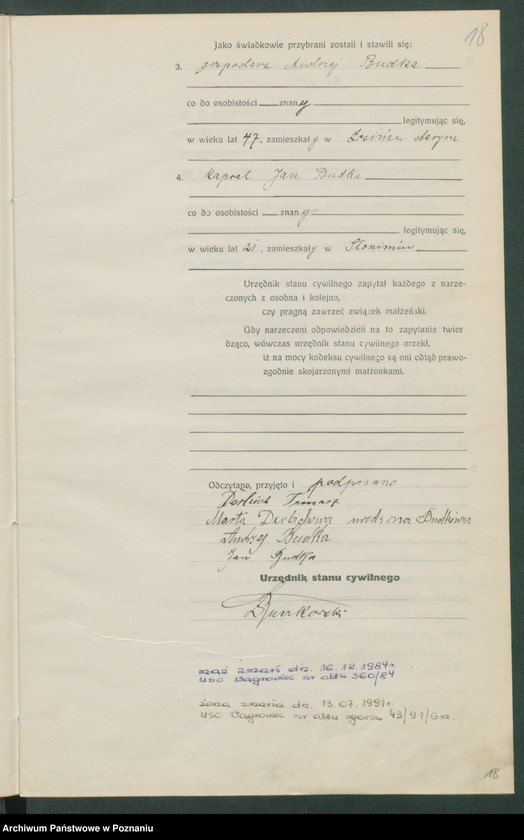 18
Jako świadkowie przybrani zostali i stawili się:
3. gospodarz Andrzej Budka
co do osobistości znany
legitymując się,
w wieku lat 47, zamieszkały w starym
4. kapral Jan Budka
co do osobistości znany
legitymując się,
w wieku lat 21, zamieszkały w
Urzędnik stanu cywilnego zapytał każdego z narze-
czonych z osobna i kolejno,
czy pragną zawrzeć związek małżeński.
Gdy narzeczeni odpowiedzieli na to zapytanie twier
dząco, wówczas urzędnik stanu cywilnego orzekł,
iż na mocy kodeksu cywilnego są oni odtąd prawo-
zgodnie skojarzonymi małżonkami.
Odczytano, przyjęto i podpisano
Tomasz
Marta urodzona Budkówna
Andrzej Budka
Jan Budka
Urzędnik stanu cywilnego
mąż zmarł dn. 16.12.1984r.
USC Wągrowiec nr aktu 360/84
żona zmarła dn. 13.07.1991r.
USC Wągrowiec nr aktu zgonu 43/91/
18
Archiwum Państwowe w Poznaniu